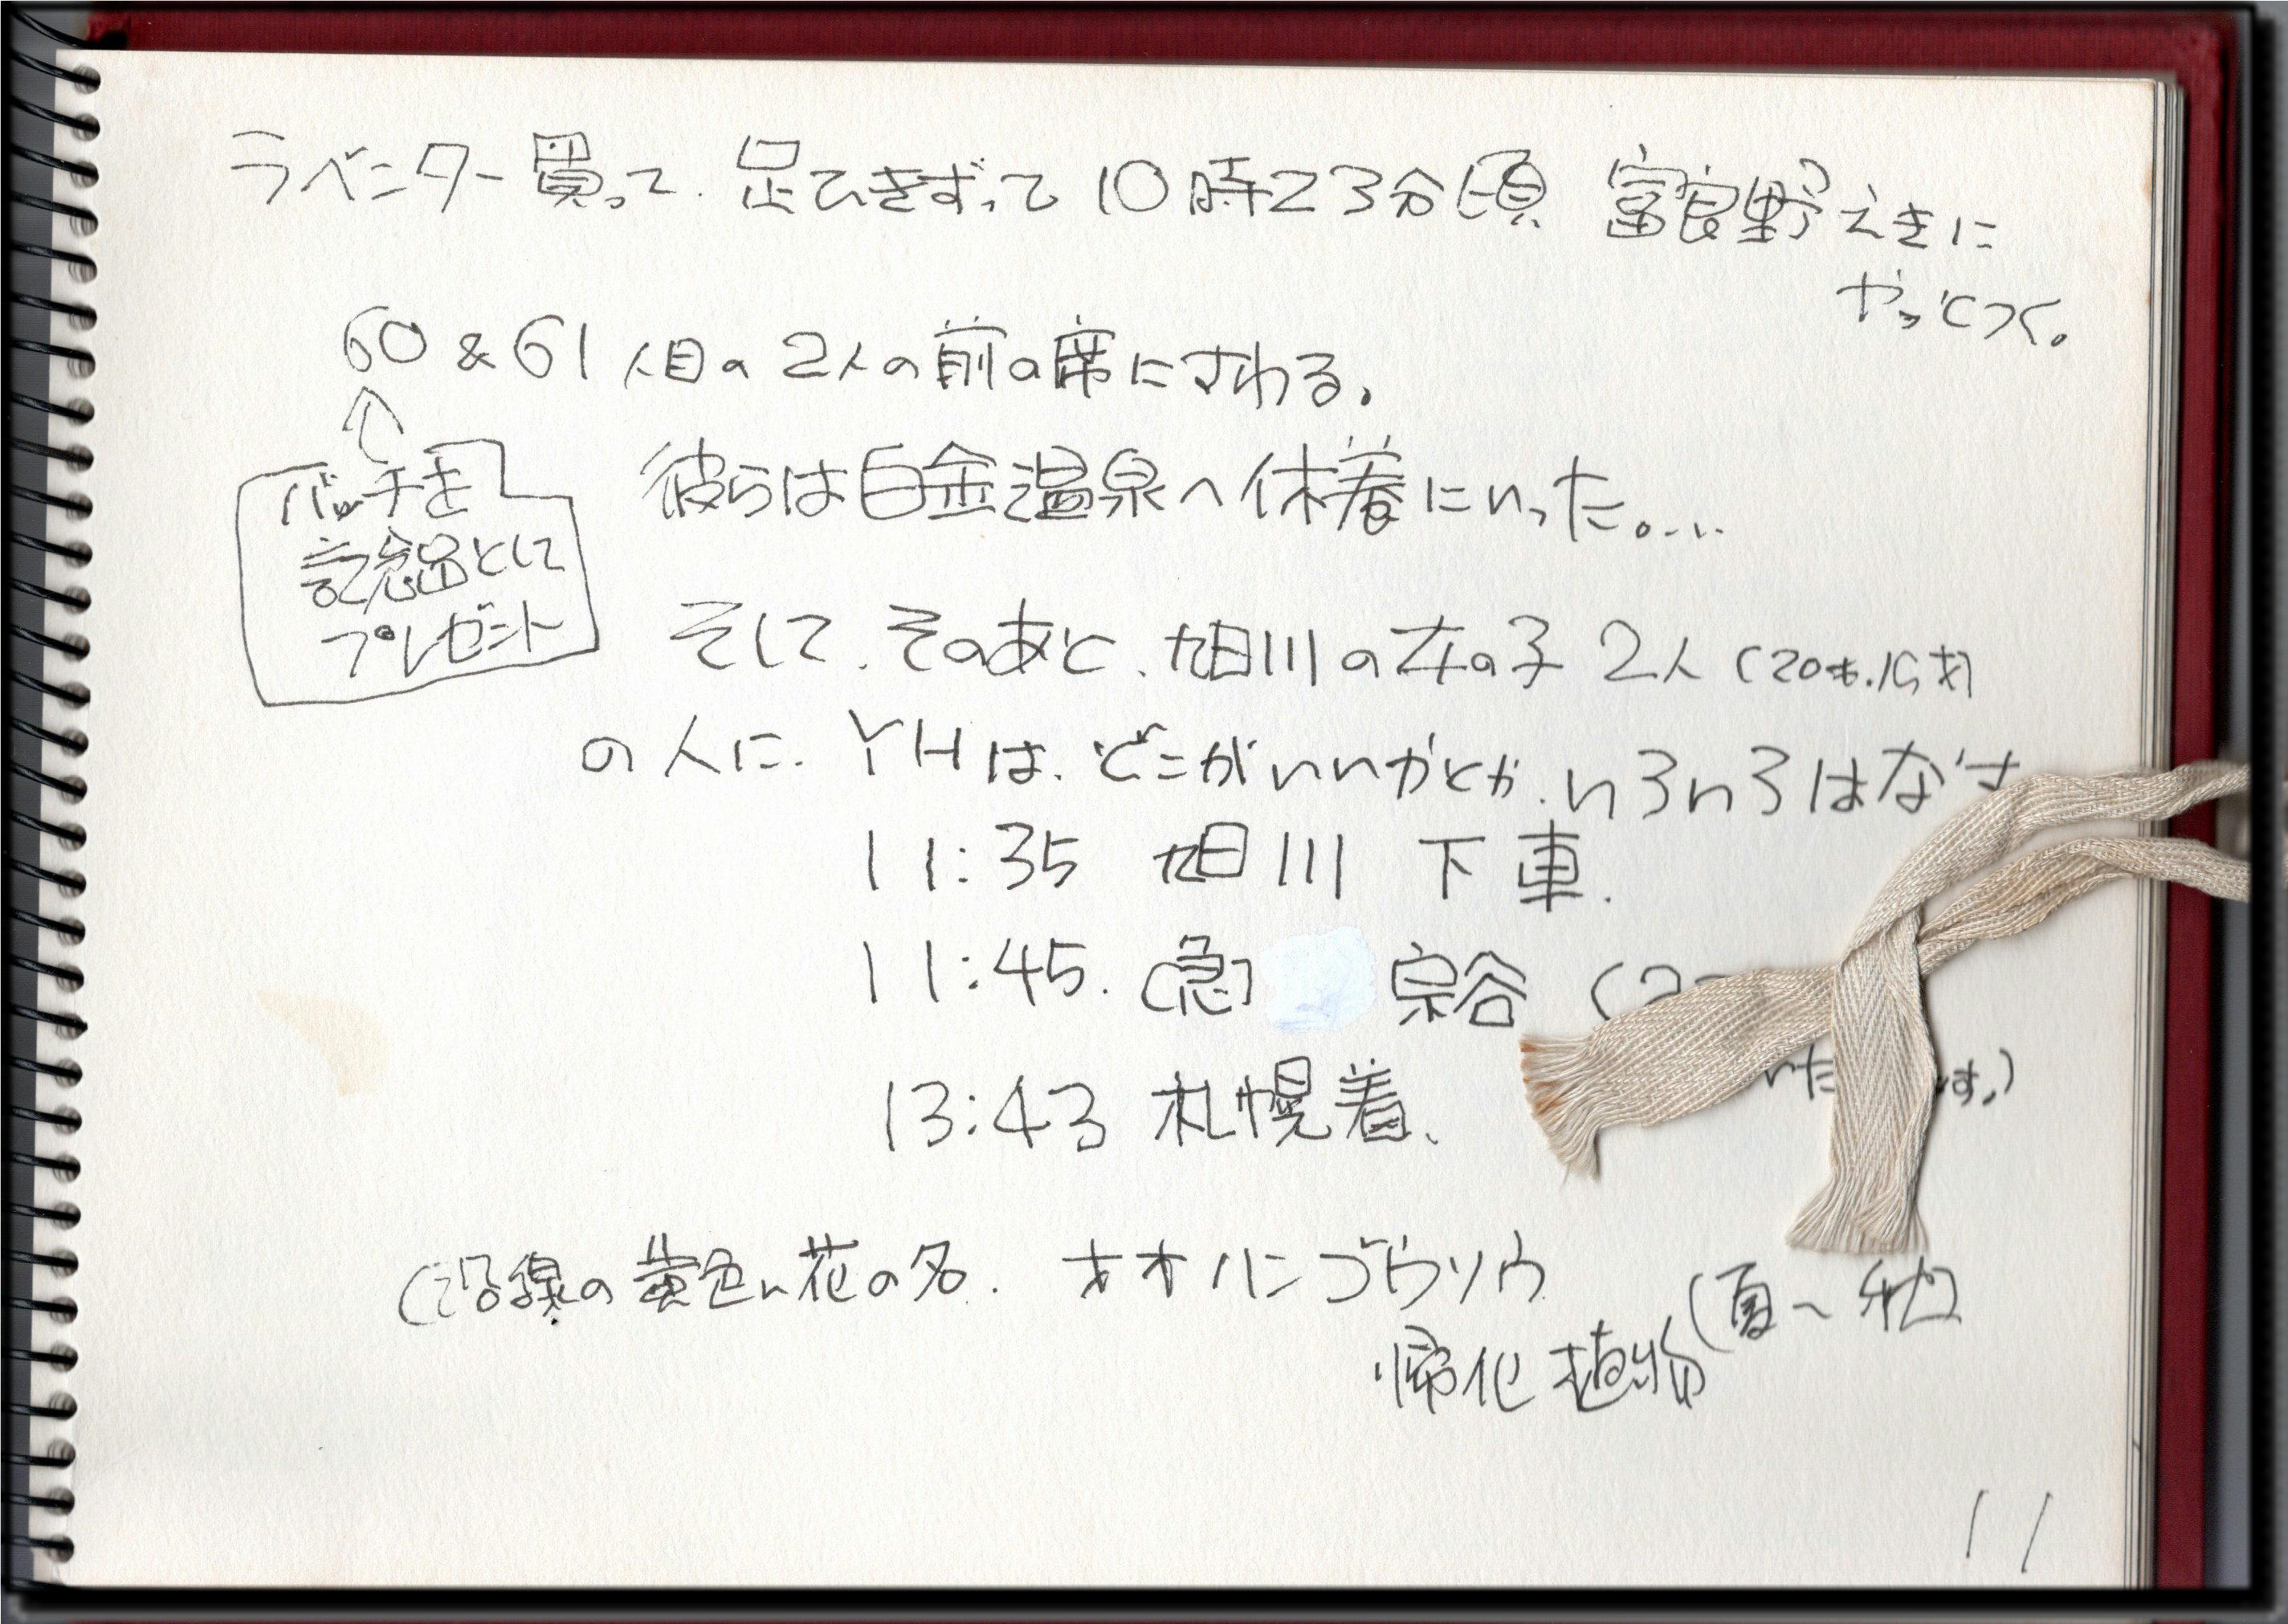 ラベンダー買って、足ひきずって10時23分頃 富良野えきに
やっとつく。
60&61人目の2人の前の席にすわる。
バッチを
記念品として
プレゼント
彼らは白金温泉へ休養にいった。...
そして、そのあと、旭川の女の子 2人(20才.15才)
の人に、YHは、どこがいいかとか、いろいろはなす
11:35 旭川 下車.
11:45. (急) 宗谷 (2
13:43 札幌着.
(沿線の黄色い花の名. オオハンゴウソウ
帰化植物(夏〜秋)
11